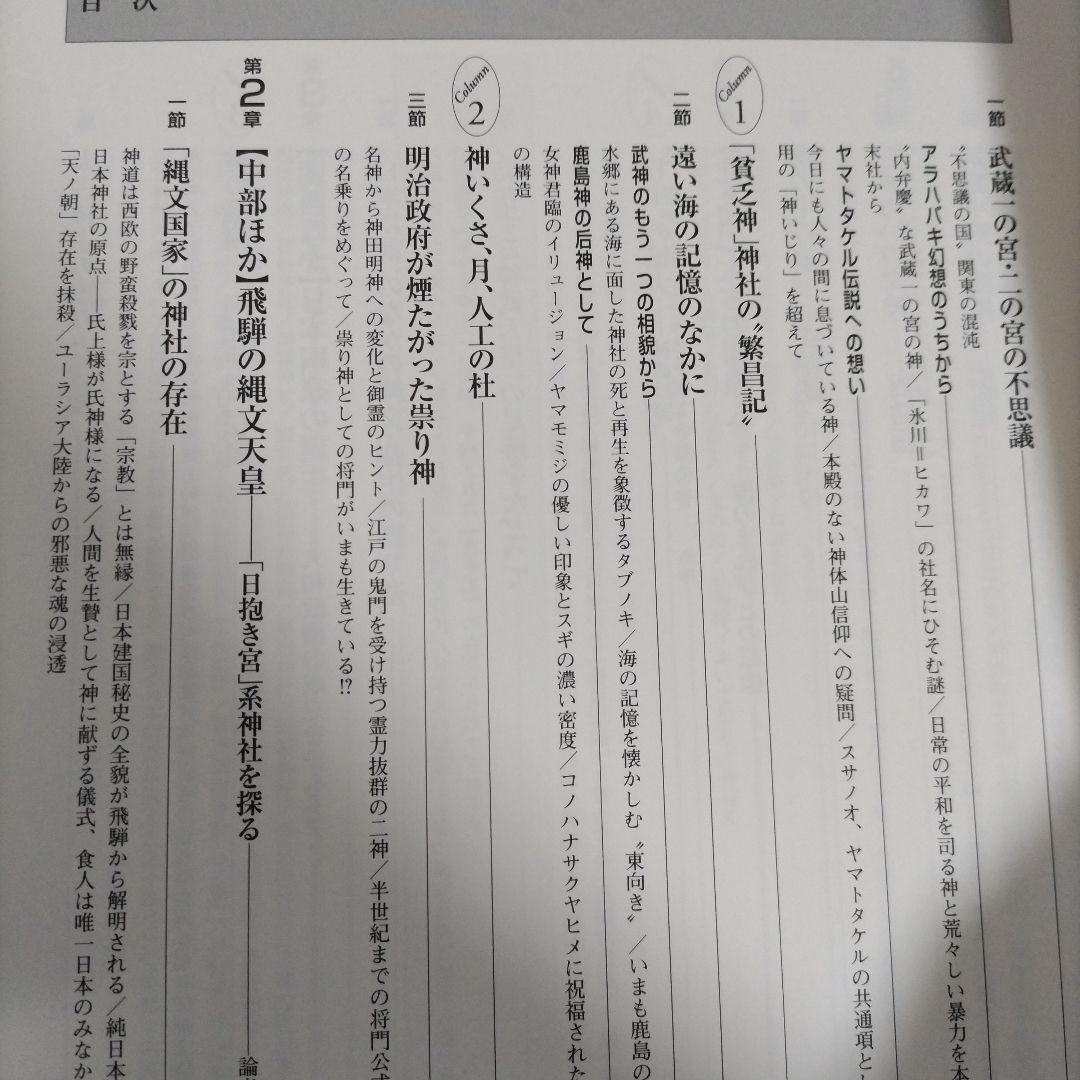 目次
一節 武蔵一の宮・二の宮の不思議
〝不思議の国〟関東の混沌
アラハバキ幻想のうちから
〝内弁慶〟な武蔵一の宮の神／「氷川＝ヒカワ」の社名にひそむ謎／日常の平和を司る神と荒々しい暴力を本
末社から
ヤマトタケル伝説への想い
今日にも人々の間に息づいている神／本殿のない神体山信仰への疑問／スサノオ、ヤマトタケルの共通項とし
用の「神いじり」を超えて
Column 1 「貧乏神」神社の〝繁昌記〟
二節 遠い海の記憶のなかに
武神のもう一つの相貌から
水郷にある海に面した神社の死と再生を象徴するタブノキ／海の記憶を懐かしむ〝東向き〟／いまも鹿島の
鹿島神の后神として
女神君臨のイリュージョン／ヤマモミジの優しい印象とスギの濃い密度／コノハナサクヤヒメに祝福された
の構造
Column 2 神いくさ、月、人工の杜
三節 明治政府が煙たがった祟り神
名神から神田明神への変化と御霊のヒント／江戸の鬼門を受け持つ霊力抜群の二神／半世紀までの将門公式
の名乗りをめぐって／祟り神としての将門がいまも生きている!?
第2章 【中部ほか】飛騨の縄文天皇――「日抱き宮」系神社を探る 論
一節 「縄文国家」の神社の存在
神道は西欧の野蛮殺戮を宗とする「宗教」とは無縁／日本建国秘史の全貌が飛騨から解明される／純日本
日本神社の原点――氏上様が氏神様になる／人間を生贄として神に献ずる儀式、食人は唯一日本のみなか
「天ノ朝」存在を抹殺／ユーラシア大陸からの邪悪な魂の浸透